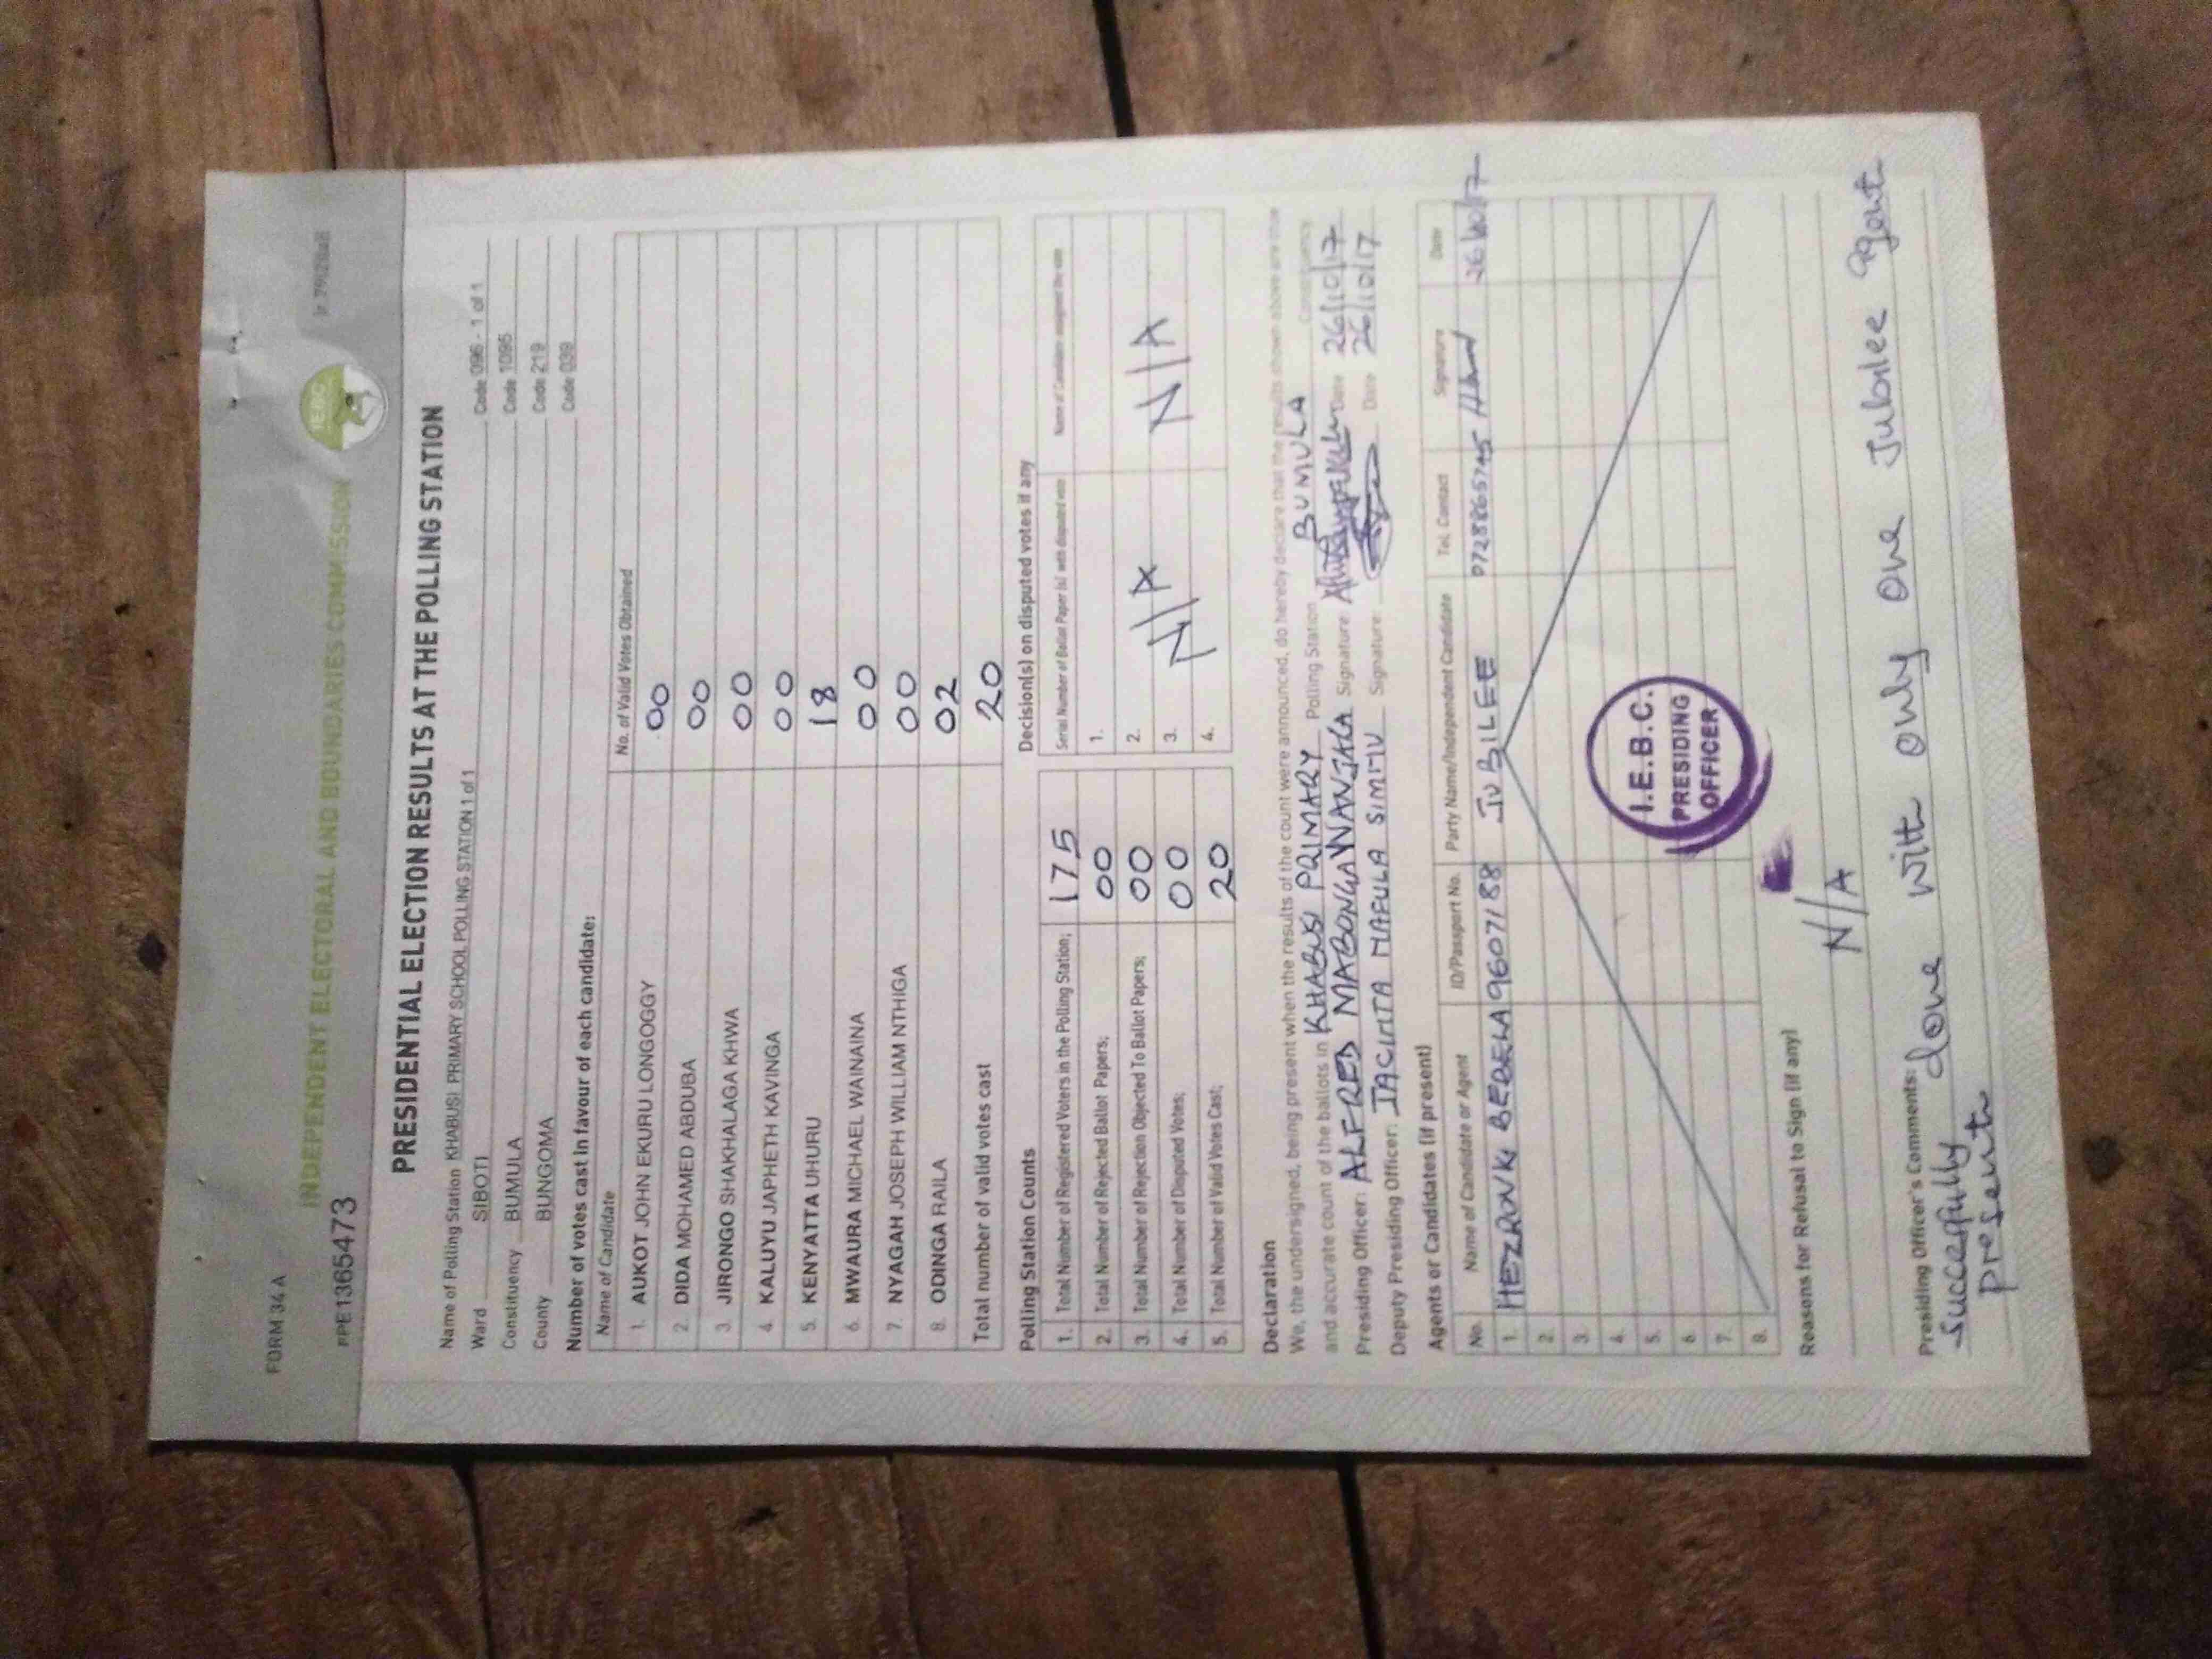 FORM 34A
INDEPENDENT ELECTORAL AND BOUNDARIES COMMISSION
IEBC
#PE1365473
PRESIDENTIAL ELECTION RESULTS AT THE POLLING STATION
Name of Polling Station KHABUSI PRIMARY SCHOOL POLLING STATION 1 of 1 Code 096 - 1 of 1
Ward SIBOTI Code 1095
Constituency BUMULA Code 219
County BUNGOMA Code 039
Number of votes cast in favour of each candidate:
Name of Candidate No. of Valid Votes Obtained
1. AUKOT JOHN EKURU LONGOGGY 00
2. DIDA MOHAMED ABDUBA 00
3. JIRONGO SHAKHALAGA KHWA 00
4. KALUYU JAPHETH KAVINGA 00
5. KENYATTA UHURU 18
6. MWAURA MICHAEL WAINAINA 00
7. NYAGAH JOSEPH WILLIAM NTHIGA 00
8. ODINGA RAILA 02
Total number of valid votes cast 20
Polling Station Counts
1. Total Number of Registered Voters in the Polling Station; 175
2. Total Number of Rejected Ballot Papers; 00
3. Total Number of Rejection Objected To Ballot Papers; 00
4. Total Number of Disputed Votes; 00
5. Total Number of Valid Votes Cast; 20
Decision(s) on disputed votes if any
Serial Number of Ballot Paper (s) with disputed vote Name of Candidate the vote
1.
2.
3. N/A N/A
4.
Declaration
We, the undersigned, being present when the results of the count were announced, do hereby declare that the results shown above are true
and accurate count of the ballots in KHABUSI PRIMARY Polling Station BUMULA Constituency
Presiding Officer: ALFRED MABONGA WANJALA Signature: Date 26/10/17
Deputy Presiding Officer: JACINTA MAFULA SIMIYU Signature: Date 26/10/17
Agents or Candidates (if present)
No. Name of Candidate or Agent ID/Passport No. Party Name/Independent Candidate Tel. Contact Signature Date
1. 9607188 JUBILEE 26/10/17
2.
3.
4.
5.
6.
7.
8.
I.E.B.C.
PRESIDING
OFFICER
Reasons for Refusal to Sign (if any)
N/A
Presiding Officer's Comments:
Succefully done with only one Jubilee agent
present